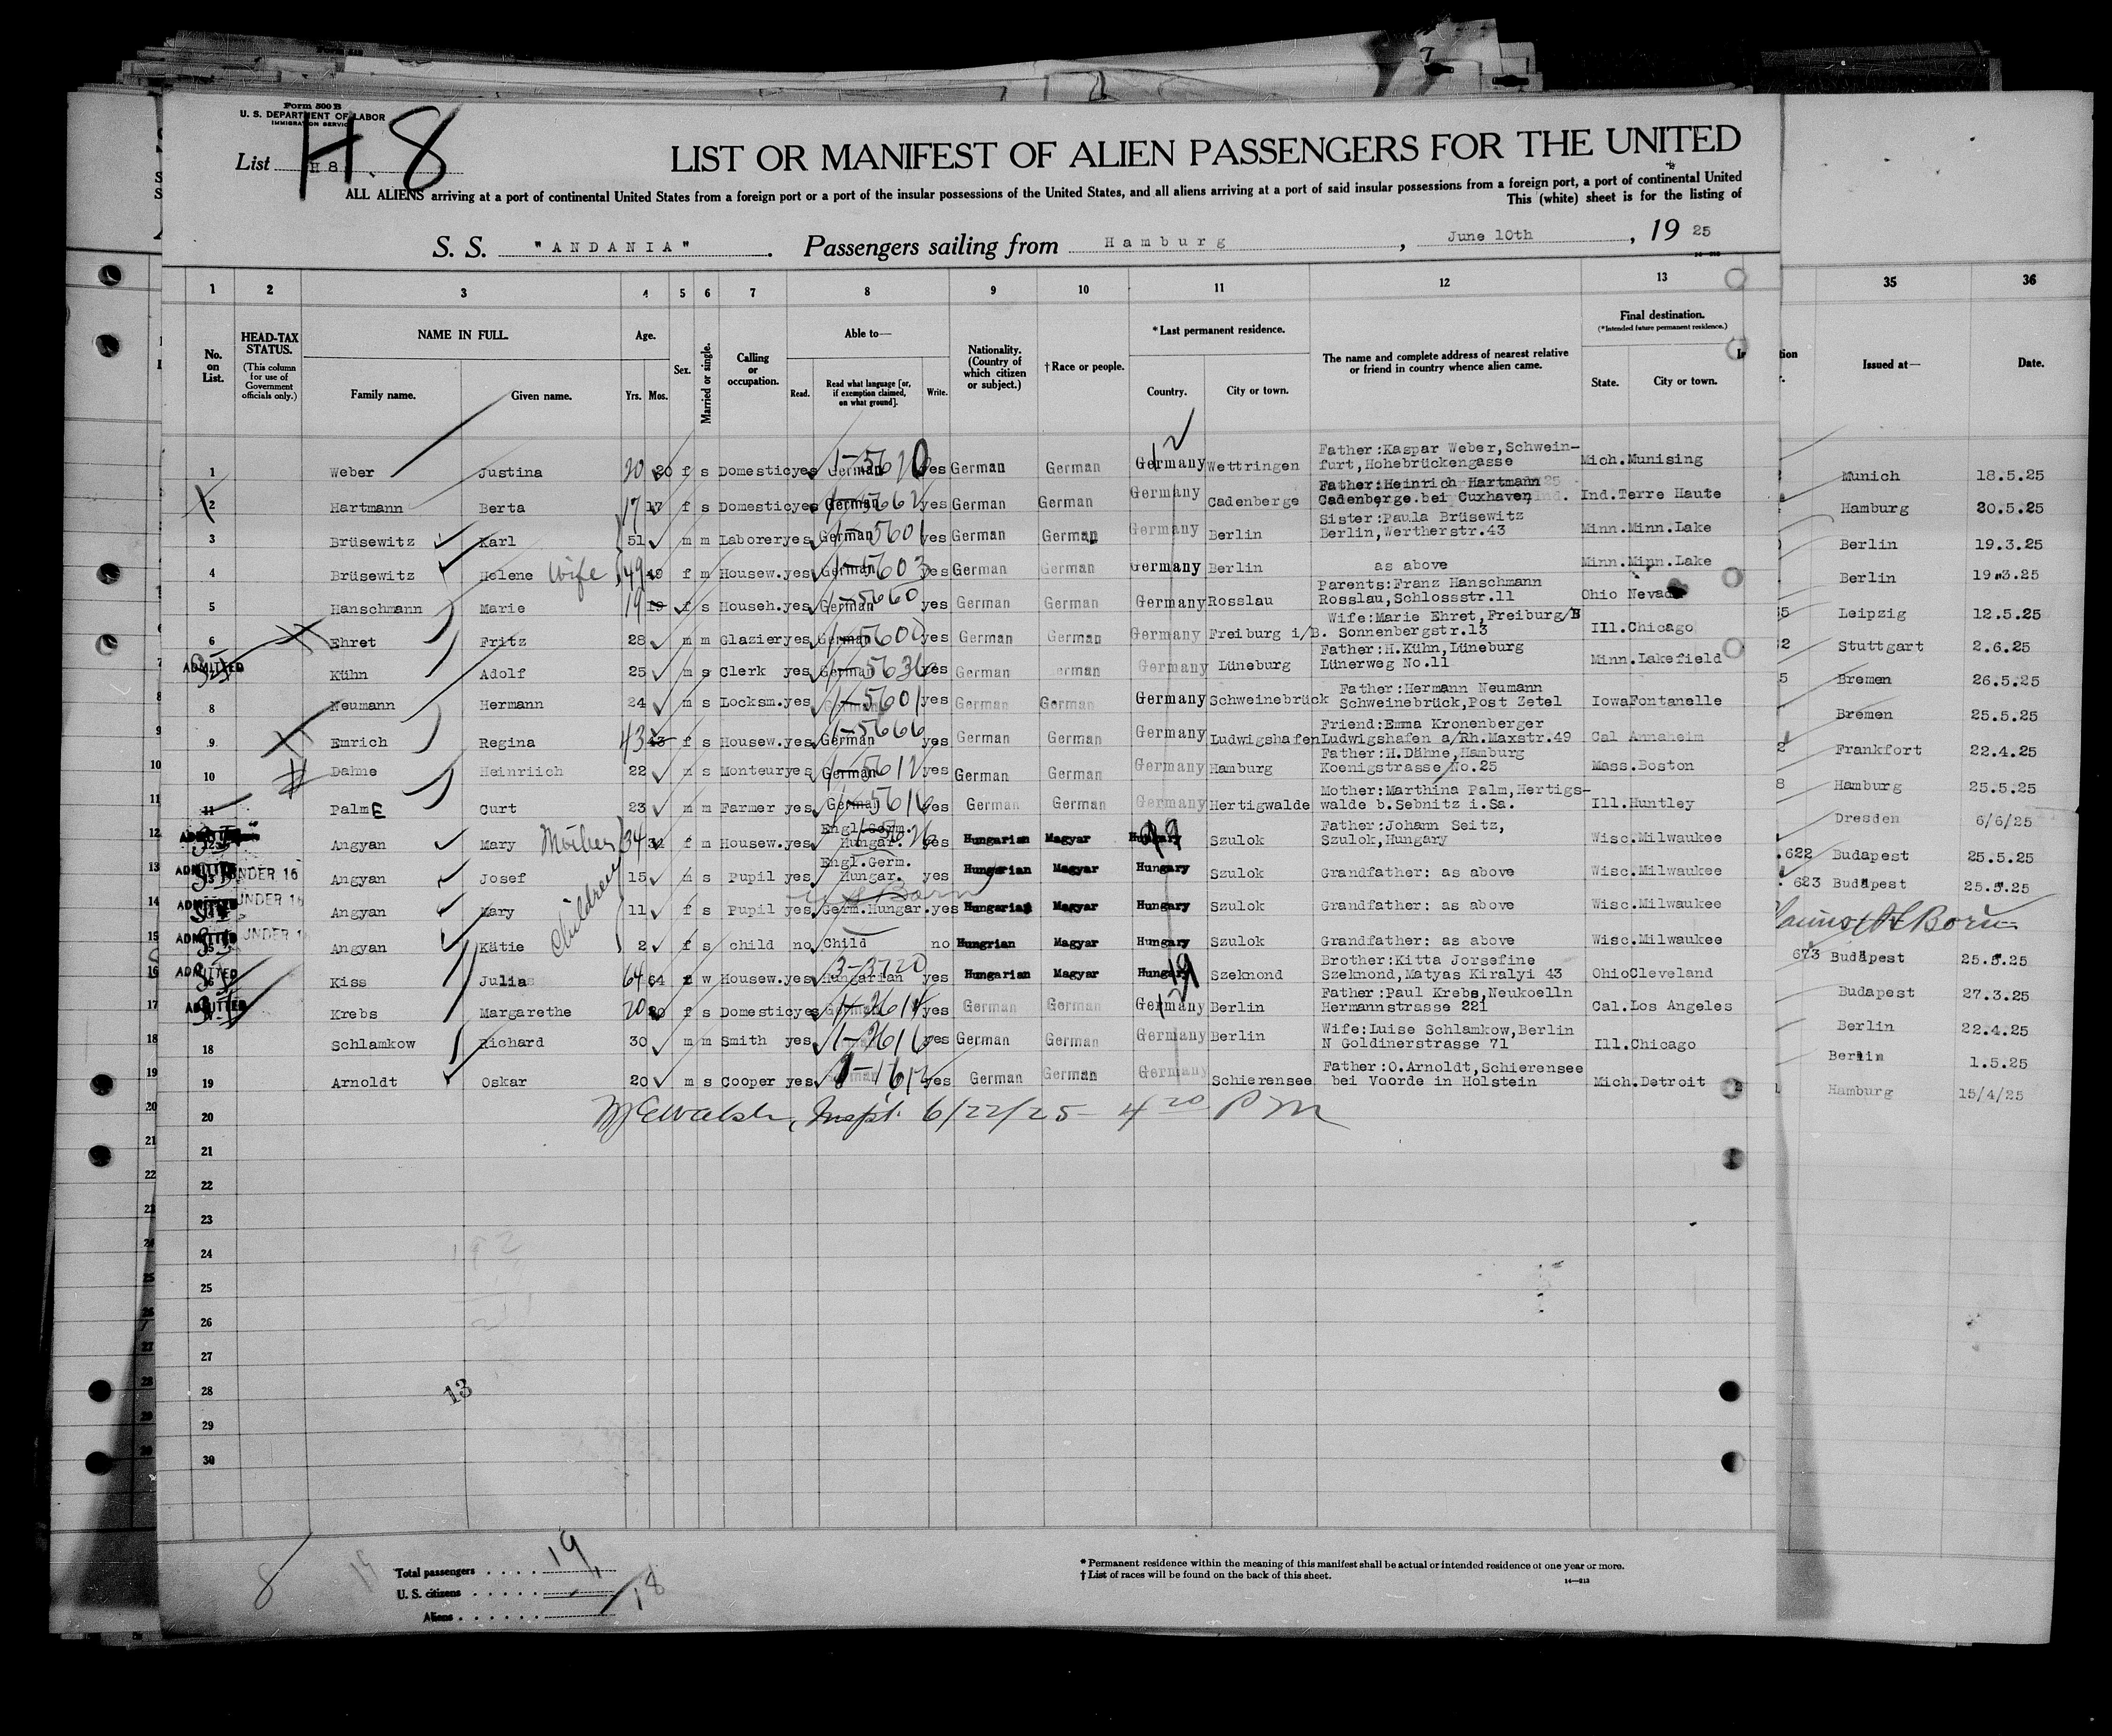 Form 500 B
U. S. DEPARTMENT OF LABOR
IMMIGRATION SERVICE
H 8
List H 8
LIST OR MANIFEST OF ALIEN PASSENGERS FOR THE UNITED
ALL ALIENS arriving at a port of continental United States from a foreign port or a port of the insular possessions of the United States, and all aliens arriving at a port of said insular possessions from a foreign port, a port of continental United
This (white) sheet is for the listing of
S. S. "ANDANIA". Passengers sailing from Hamburg, June 10th, 19 25
1 2 3 4 5 6 7 8 9 10 11 12 13 35 36
No. on List.
HEAD-TAX STATUS.
(This column for use of Government officials only.)
NAME IN FULL.
Family name. Given name.
Age.
Yrs. Mos.
Sex.
Married or single.
Calling or occupation.
Able to—
Read. Read what language [or, if exemption claimed, on what ground]. Write.
Nationality. (Country of which citizen or subject.)
†Race or people.
*Last permanent residence.
Country. City or town.
The name and complete address of nearest relative or friend in country whence alien came.
Final destination.
(*Intended future permanent residence.)
State. City or town.
Issued at— Date.
1 Weber Justina 20 20 f s Domestic yes German 1-5620 yes German German Germany Wettringen Father:Kaspar Weber,Schwein-furt,Hohebrückengasse Mich. Munising Munich 18.5.25
2 Hartmann Berta 17 17 f s Domestic yes German yes German German Germany Cadenberge Father:Heinrich Hartmann Cadenberge.bei Cuxhaven Ind. Terre Haute Hamburg 20.5.25
3 Brüsewitz Karl 51 m m Laborer yes German 5601 yes German German Germany Berlin Sister:Paula Brüsewitz Berlin,Wertherstr.43 Minn. Minn.Lake Berlin 19.3.25
4 Brüsewitz Helene Wife 49 49 f m Housew. yes German 1-5603 yes German German Germany Berlin as above Minn. Minn.Lake Berlin 19.3.25
5 Hanschmann Marie 19 19 f s Househ. yes German 1-5660 yes German German Germany Rosslau Parents:Franz Hanschmann Rosslau,Schlossstr.11 Ohio Nevada Leipzig 12.5.25
6 Ehret Fritz 28 m m Glazier yes German yes German German Germany Freiburg i/B. Wife:Marie Ehret,Freiburg/B Sonnenbergstr.13 Ill. Chicago Stuttgart 2.6.25
7 ADMITTED Kühn Adolf 25 m s Clerk yes German 1-5636 yes German erman Germany Lüneburg Father:H.Kühn,Lüneburg Lünerweg No.11 Minn. Lakefield Bremen 26.5.25
8 Neumann Hermann 24 m s Locksm. yes German 1-5601 yes German German Germany Schweinebrück Father:Hermann Neumann Schweinebrück,Post Zetel Iowa Fontanelle Bremen 25.5.25
9 Emrich Regina 43 43 f s Housew. yes German 1-5666 yes German German Germany Ludwigshafen Friend:Emma Kronenberger Ludwigshafen a/Rh.Maxstr.49 Cal Annaheim Frankfort 22.4.25
10 Dahne Heinriich 22 m s Monteur yes German 1-5612 yes German German Germany Hamburg Father:H.Dähne,Hamburg Koenigstrasse No.25 Mass. Boston Hamburg 25.5.25
11 PalmE Curt 23 m m Farmer yes German 1-5616 yes German German Germany Hertigwalde Mother:Marthina Palm,Hertigs-walde b.Sebnitz i.Sa. Ill. Huntley Dresden 6/6/25
12 ADMITTED Angyan Mary Mother 34 34 f m Housew. yes Engl.Germ. Hungar. yes Hungarian Magyar Hungary Szulok Father:Johann Seitz, Szulok,Hungary Wisc. Milwaukee 622 Budapest 25.5.25
13 ADMITTED UNDER 16 Angyan Josef Children 15 m s Pupil yes Engl.Germ. Hungar. yes Hungarian Magyar Hungary Szulok Grandfather: as above Wisc. Milwaukee 623 Budapest 25.5.25
14 ADMITTED UNDER 16 Angyan Mary 11 f s Pupil yes Germ.Hungar. yes Hungarian Magyar Hungary Szulok Grandfather: as above Wisc. Milwaukee Claims US Born
15 ADMITTED UNDER 1 Angyan Kätie 2 f s child no Child no Hungrian Magyar Hungary Szulok Grandfather: as above Wisc. Milwaukee 673 Budapest 25.5.25
16 ADMITTED Kiss Julia 64 64 f w Housew. yes Hungarian 3-3720 yes Hungarian Magyar Hungary Szeknond Brother:Kitta Jorsefine Szeknond,Matyas Kiralyi 43 Ohio Cleveland Budapest 27.3.25
17 ADMITTED Krebs Margarethe 20 20 f s Domestic yes German yes German German Germany Berlin Father:Paul Krebs,Neukoelln Hermannstrasse 221 Cal. Los Angeles Berlin 22.4.25
18 Schlamkow Richard 30 m m Smith yes yes German German Germany Berlin Wife:Luise Schlamkow,Berlin N Goldinerstrasse 71 Ill. Chicago Berlin 1.5.25
19 Arnoldt Oskar 20 m s Cooper yes German yes German German Germany Schierensee Father:O.Arnoldt,Schierensee bei Voorde in Holstein Mich. Detroit Hamburg 15/4/25
20 Walsh, Inspt. 6/22/25 - 4 20 PM
21
22
23
24
25
26
27
28 13
29
30
8
Total passengers 19
U. S. citizens 1
Aliens 18
* Permanent residence within the meaning of this manifest shall be actual or intended residence of one year or more.
† List of races will be found on the back of this sheet.
14—213